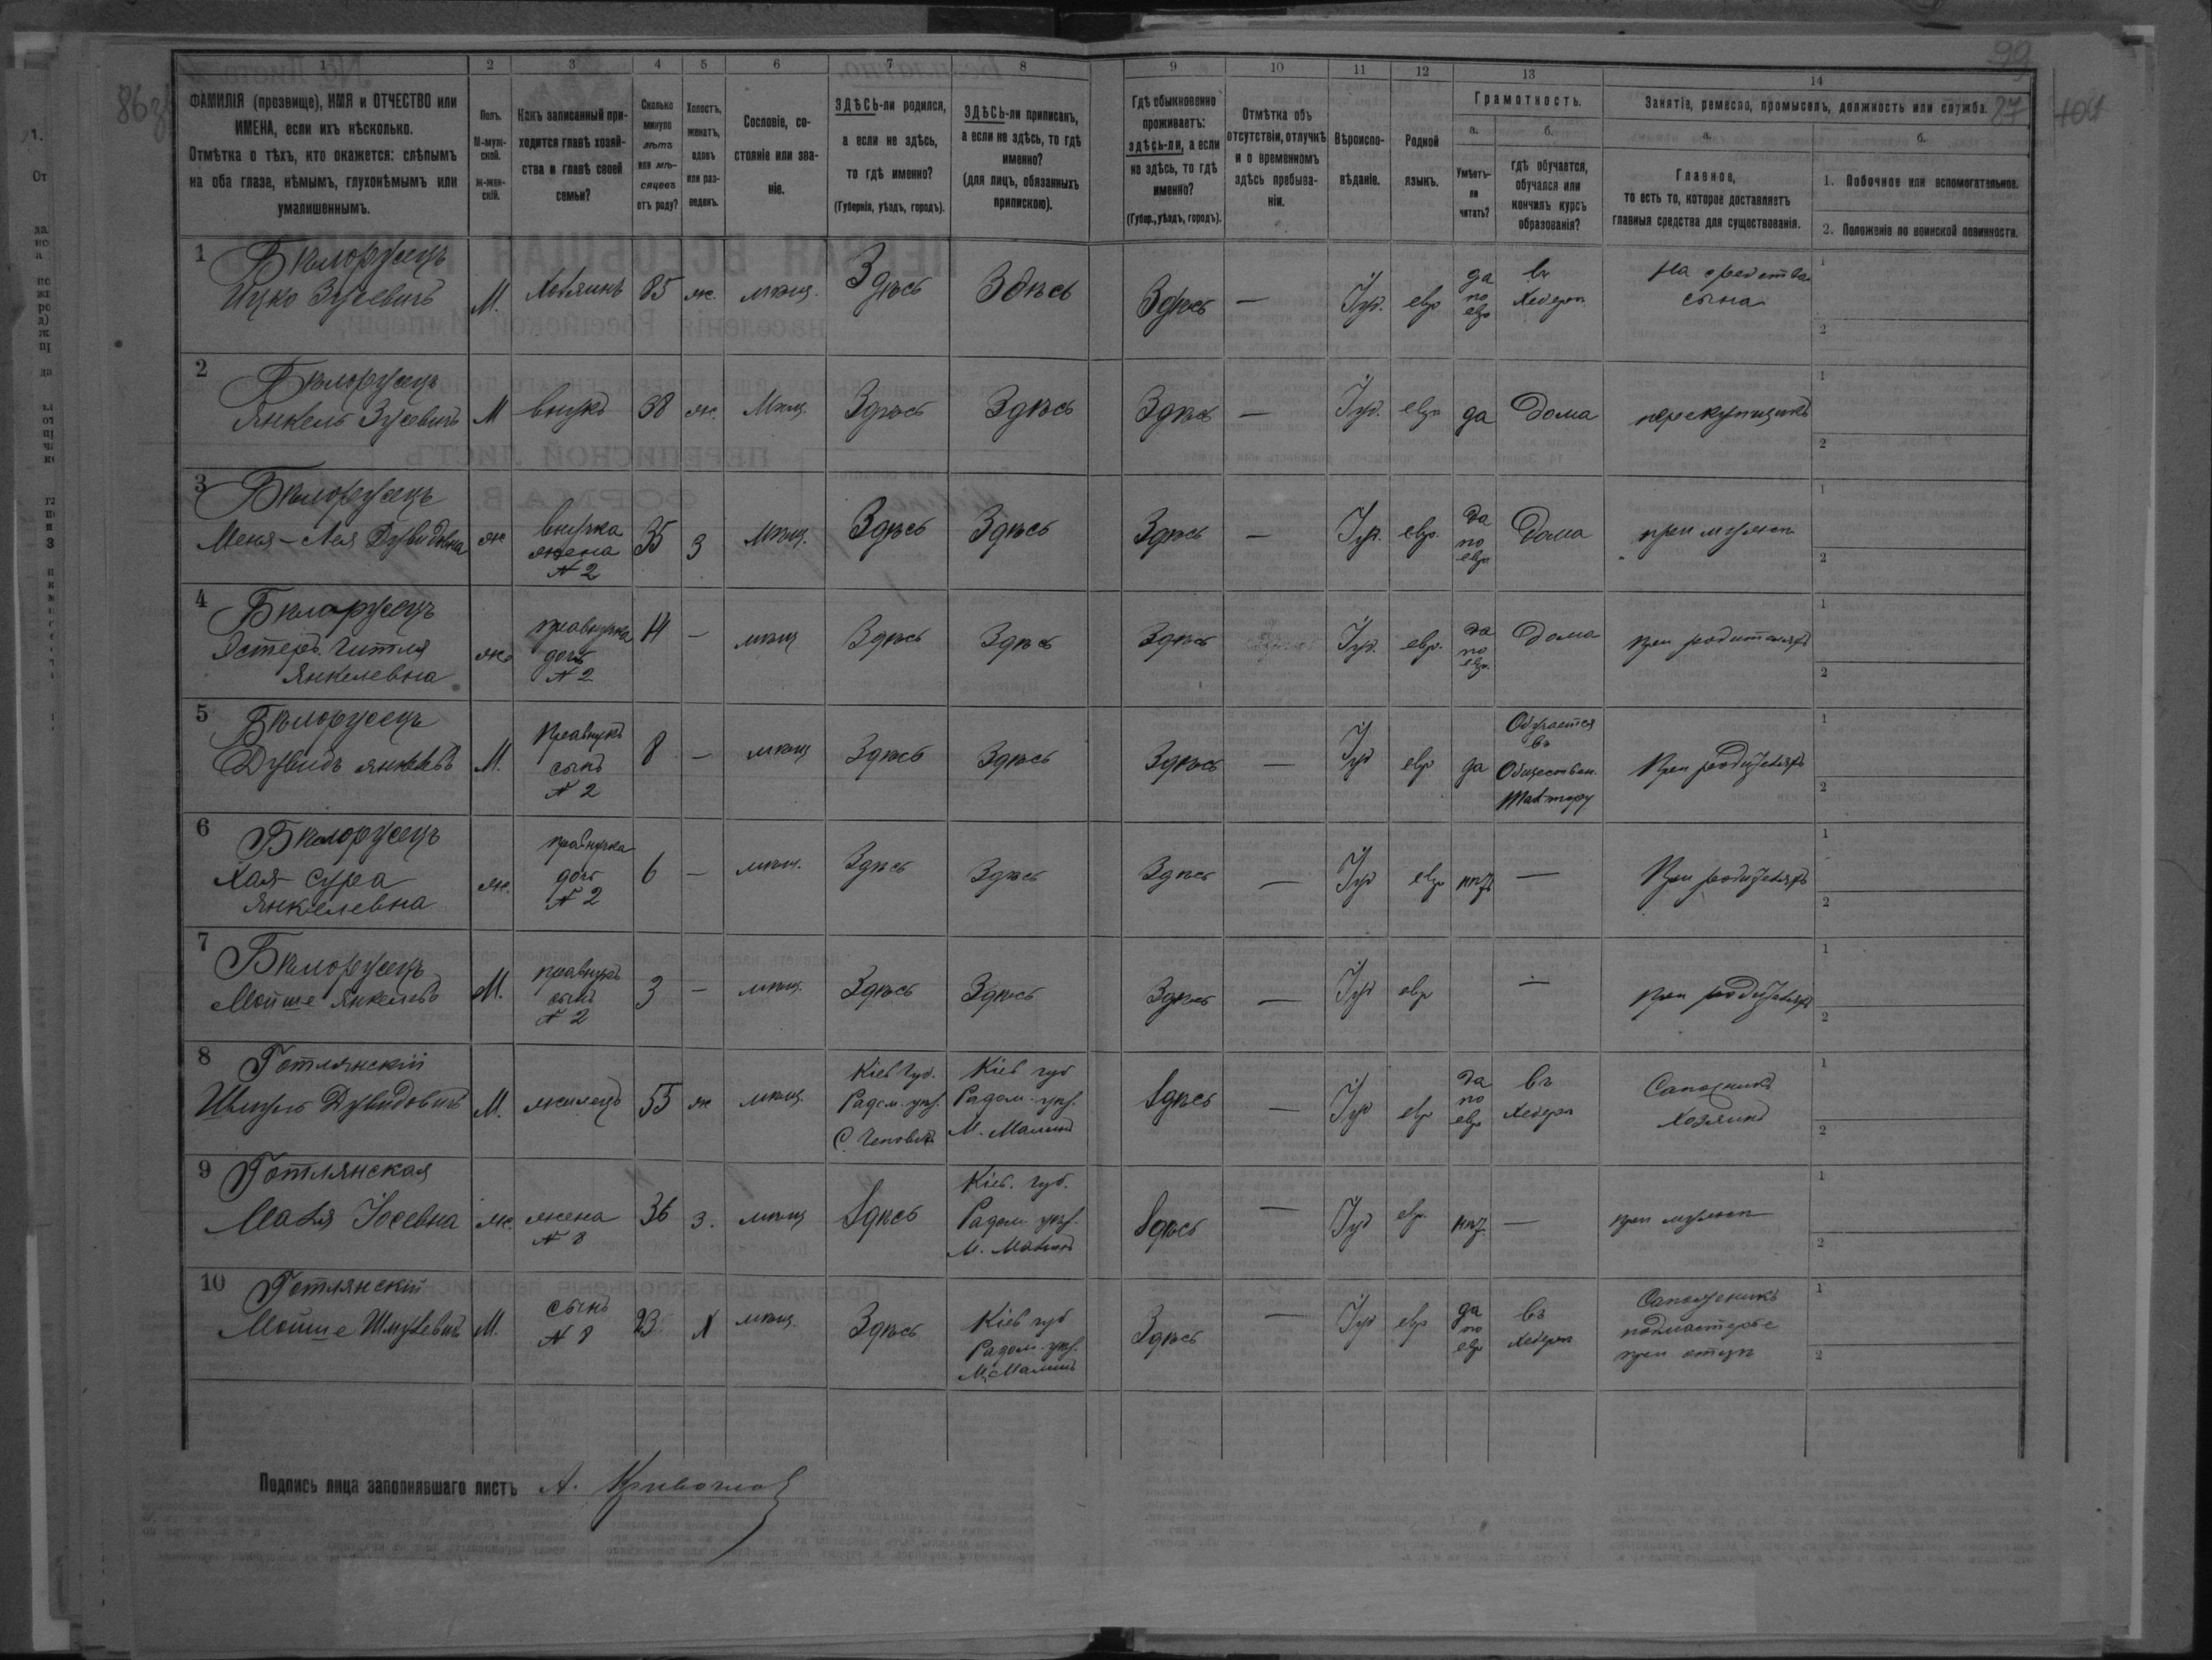 86
99
87
404
1 2 3 4 5 6 7 8 9 10 11 12 13 14
ФАМИЛІЯ (прозвище), ИМЯ и ОТЧЕСТВО или ИМЕНА, если ихъ нѣсколько.
Отмѣтка о тѣхъ, кто окажется: слѣпымъ на оба глаза, нѣмымъ, глухонѣмымъ или умалишеннымъ.
Полъ. М-мужской. Ж-женскій.
Какъ записанный приходится главѣ хозяйства и главѣ своей семьи?
Сколько минуло лѣтъ или мѣсяцевъ отъ роду?
Холостъ, женатъ, вдовъ или разведенъ.
Сословіе, состояніе или званіе.
ЗДѢСЬ-ли родился, а если не здѣсь, то гдѣ именно? (Губернія, уѣздъ, городъ).
ЗДѢСЬ-ли приписанъ, а если не здѣсь, то гдѣ именно? (для лицъ, обязанныхъ припискою).
Гдѣ обыкновенно проживаетъ: здѣсь-ли, а если не здѣсь, то гдѣ именно? (Губер., уѣздъ, городъ).
Отмѣтка объ отсутствіи, отлучкѣ и о временномъ здѣсь пребываніи.
Вѣроисповѣданіе.
Родной языкъ.
Грамотность.
а. Умѣетъ-ли читать?
б. гдѣ обучается, обучался или кончилъ курсъ образованія?
Занятіе, ремесло, промыселъ, должность или служба.
а. Главное, то есть то, которое доставляетъ главныя средства для существованія.
б.
1. Побочное или вспомогательное.
2. Положеніе по воинской повинности.
1 Бѣлорусецъ Ицко Зусевичъ М. Хозяинъ 85 ж. мѣщ. Здѣсь Здѣсь Здѣсь — Іуд. евр да по евр въ Хедерѣ На средства сына 1 2
2 Бѣлорусецъ Янкель Зусевичъ М внукъ 38 ж. Мѣщ. Здѣсь Здѣсь Здѣсь — Іуд. евр да Дома перекупщикъ 1 2
3 Бѣлорусецъ Меня-Лея Дувидовна ж внучка жена № 2 35 з мѣщ. Здѣсь Здѣсь Здѣсь — Іуд. евр. да по евр Дома при мужѣ 1 2
4 Бѣлорусецъ Эстеръ Гитля Янкелевна ж. правнучка дочь № 2 14 — мѣщ Здѣсь Здѣсь Здѣсь Іуд. евр. да по евр. Дома при родителяхъ 1 2
5 Бѣлорусецъ Дувидъ Янкелевъ М. правнукъ сынъ № 2 8 — мѣщ Здѣсь Здѣсь Здѣсь — Іуд евр да Обучается въ Обществен. при родителяхъ 1 2
6 Бѣлорусецъ Хая-Сура Янкелевна ж. правнучка дочь № 2 6 — мѣщ. Здѣсь Здѣсь Здѣсь — Іуд евр нѣтъ — При родителяхъ 1 2
7 Бѣлорусецъ Мойше Янкелевъ М. правнукъ сынъ № 2 3 — мѣщ. Здѣсь Здѣсь Здѣсь — Іуд евр — при родителяхъ 1 2
8 Готлянскій Шмуль Дувидовичъ М. жилецъ 55 ж мѣщ. Кіев губ. Радом. уѣз. С. Кіев губ Радом. уѣз. М. Малинъ Здѣсь — Іуд евр да по евр въ Хедерѣ Сапожникъ Хозяинъ 1 2
9 Готлянская Маля Іосевна ж. жена № 8 36 з. мѣщ Здѣсь Кіев. губ. Радом. уѣз. М. Малинъ Здѣсь — Іуд евр. нѣтъ — при мужѣ 1 2
10 Готлянскій Мойше Шмулевичъ М. сынъ № 8 23 Х мѣщ. Здѣсь Кіев губ Радом. уѣз. М. Малинъ Здѣсь — Іуд евр да по евр въ Хедерѣ Сапожникъ подмастерье при отцѣ 1 2
Подпись лица заполнявшаго листъ А.